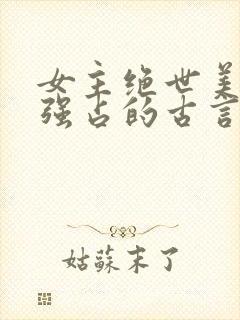 女主绝世美
强占的古言
姑蘇末了